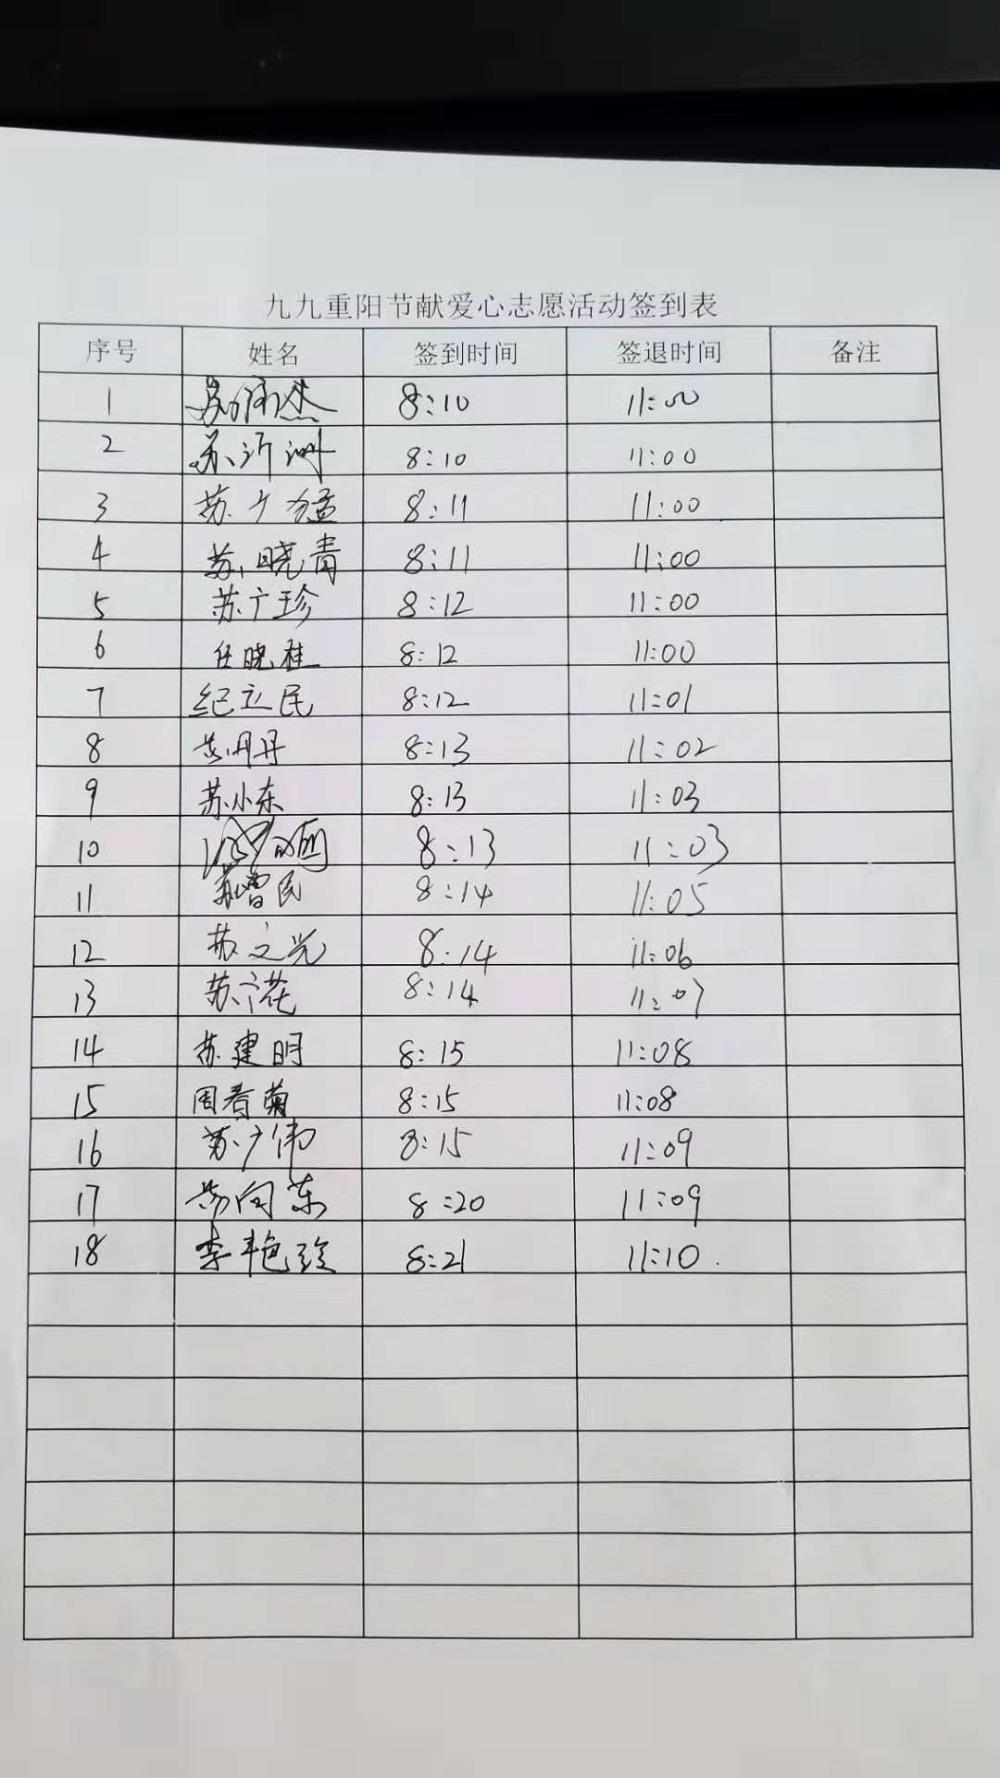 九九重阳节献爱心志愿活动签到表
序号 姓名 签到时间 签退时间 备注
1 8:10 11:00
2 苏沂洲 8:10 11:00
3 苏广猛 8:11 11:00
4 苏晓青 8:11 11:00
5 苏广珍 8:12 11:00
6 任晓桂 8:12 11:00
7 纪立民 8:12 11:01
8 8:13 11:02
9 苏小东 8:13 11:03
10 8:13 11:03
11 苏曾民 8:14 11:05
12 苏文光 8:14 11:06
13 苏广花 8:14 11:07
14 苏建明 8:15 11:08
15 周春菊 8:15 11:08
16 苏广伟 8:15 11:09
17 8:20 11:09
18 李艳玲 8:21 11:10